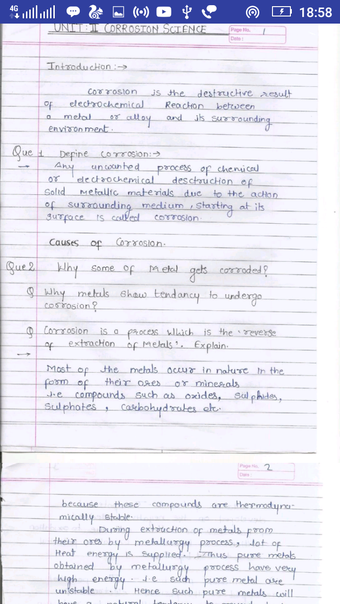 4G
18:58
UNIT: II CORROSION SCIENCE
Page No. 1
Date:
Introduction:→
Corrosion is the destructive result
of electrochemical Reaction between
a metal or alloy and its surrounding
environment.
Que 1 Define Corrosion:→
→ Any unwanted process of chemical
or electrochemical desctruction of
solid metallic materials due to the action
of surrounding medium, starting at its
surface is called corrosion.
Causes of Corrosion.
Que 2 Why some of Metal gets corroded?
Q Why metals show tendancy to undergo
corrosion?
Q Corrosion is a process which is the 'reverse
of extraction of Metals'. Explain.
→
Most of the metals occur in nature in the
form of their ores or minerals
i.e compounds such as oxides, sulphides,
sulphates, carbohydrates etc.
Page No. 2
Date:
because these compounds are thermodyna-
mically stable.
During extraction of metals from
their ores by metallurgy process, lot of
Heat energy is supplied. Thus pure metals
obtained by metallurgy process have very
high energy. i.e such pure metal are
unstable. Hence such pure metals will
have a natural tendency to